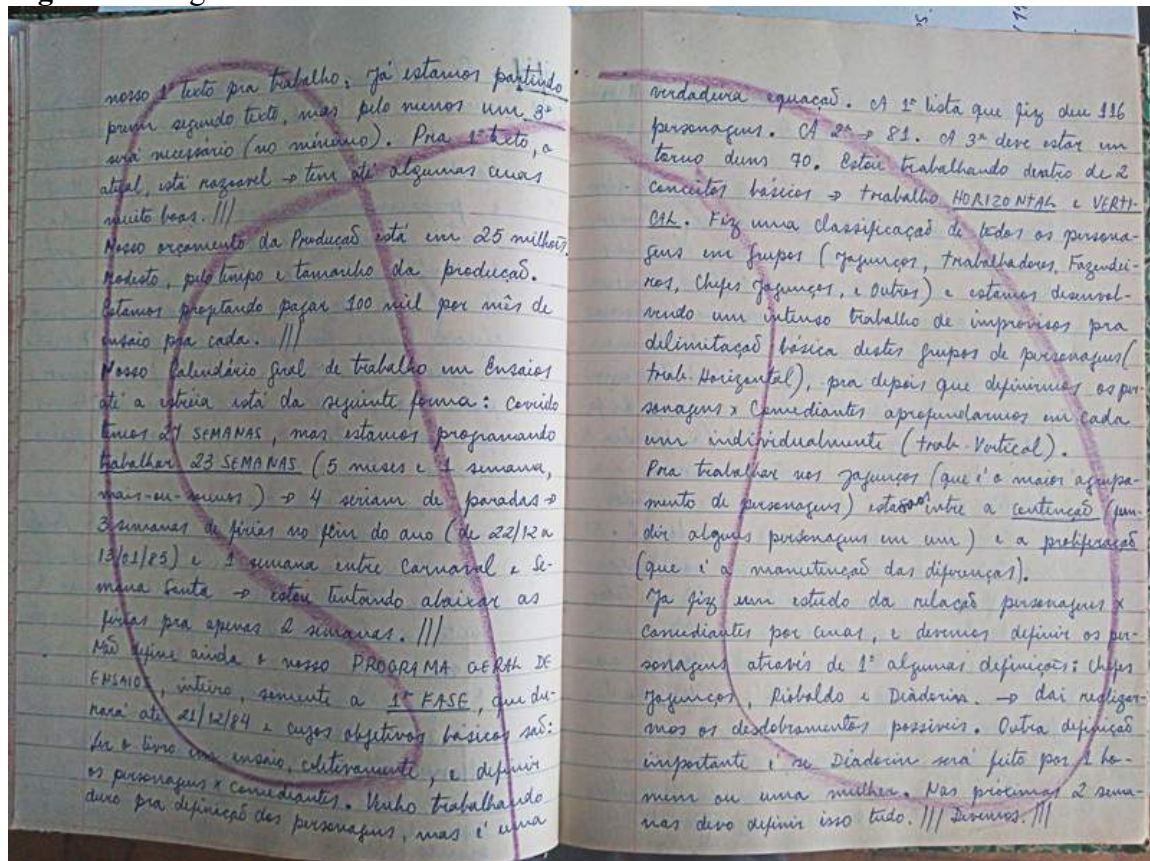 nosso 1º texto pra trabalho. Já estamos partindo
prum segundo texto, mas pelo menos um 3º
será necessario (no mínimo). Pra 1º texto, o
atual, está razoavel → tem até algumas cenas
muito boas. ///
Nosso orçamento da Produção está em 25 milhões,
modesto, pelo tempo e tamanho da produção.
Estamos projetando pagar 100 mil por mês de
ensaio pra cada. ///
Nosso Calendário geral de trabalho em Ensaios
até a estréia está da seguinte forma: corrido
temos 27 SEMANAS, mas estamos programando
trabalhar 23 SEMANAS (5 meses e 1 semana,
mais-ou-menos) → 4 seriam de paradas →
3 semanas de férias no fim do ano (de 22/12 a
13/01/85) e 1 semana entre Carnaval e Se-
mana Santa → estou tentando abaixar as
férias pra apenas 2 semanas. ///
Não define ainda o nosso PROGRAMA GERAL DE
ENSAIOS, inteiro, somente a 1ª FASE, que du-
rará até 21/12/84 e cujos objetivos básicos são:
Ler o livro em ensaio, coletivamente, e definir
os personagens x comediantes. Venho trabalhando
duro pra definição dos personagens, mas é uma
verdadeira equação. A 1ª lista que fiz deu 116
personagens. A 2ª → 81. A 3ª deve estar em
torno duns 70. Estou trabalhando dentro de 2
conceitos básicos → trabalho HORIZONTAL e VERTI-
CAL. Fiz uma Classificação de todos os persona-
gens em grupos (Jagunços, trabalhadores, Fazendei-
ros, Chefes Jagunços, e Outros) e estamos desenvol-
vendo um intenso trabalho de improvisos pra
delimitação básica destes grupos de personagens (
trab. Horizontal), pra depois que definirmos os per-
sonagens x Comediantes aprofundarmos em cada
um individualmente (trab. Vertical).
Pra trabalhar nos Jagunços (que é o maior agrupa-
mento de personagens) estamos entre a contenção (fun-
dir alguns personagens em um) e a proliferação
(que é a manutenção das diferenças).
Ja fiz um estudo da relação personagens x
comediantes por cenas, e devemos definir os per-
sonagens através de 1º algumas definições: Chefes
Jagunços, Riobaldo e Diadorim. → daí realizar-
mos os desdobramentos possiveis. Outra definição
importante é se Diadorim será feito por 1 ho-
mem ou uma mulher. Nas próximas 2 sema-
nas devo definir isso tudo. /// Devemos. ///